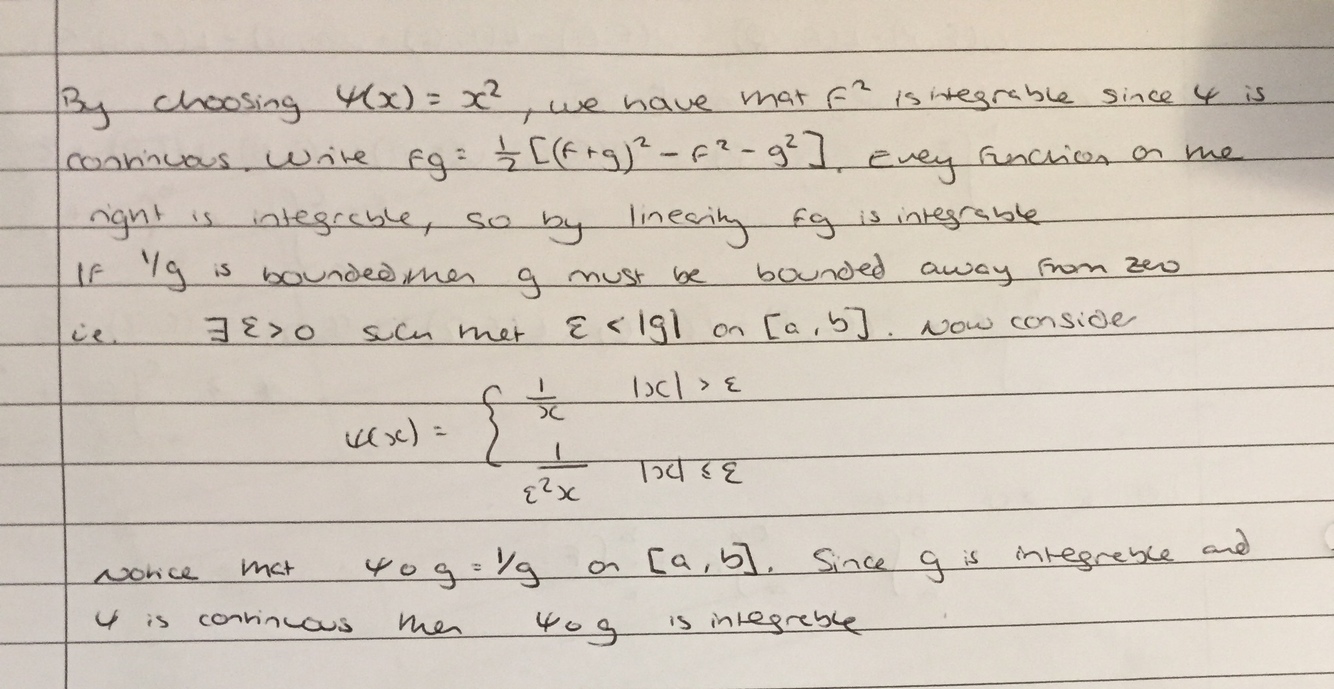 By choosing ψ(x) = x², we have that f² is integrable since ψ is
continuous. Write fg = ½[(f+g)² - f² - g²]. Every function on the
right is integrable, so by linearity fg is integrable
If 1/g is bounded, then g must be bounded away from zero
i.e. ∃ε>0 such that ε < |g| on [a,b]. Now consider
ψ(x) = { 1/x |x| > ε
1/(ε²x) |x| ≤ ε
Notice that ψ∘g = 1/g on [a,b]. Since g is integrable and
ψ is continuous then ψ∘g is integrable